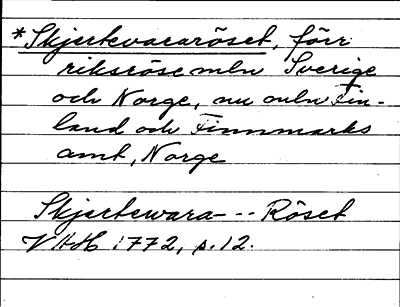 *Skjertevararöset, förr
riksröse mln Sverige
och Norge, nu mln Fin-
land och Finnmarks
amt, Norge
Skjertewara-- Röset
VHH 1772, p. 12.